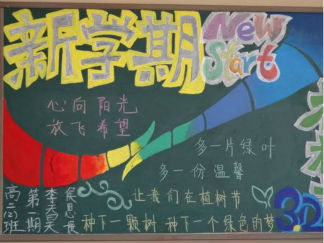 新学期
New
Start
心向阳光
放飞希望
多一片绿叶
多一份温馨
让我们在植树节
种下一颗树 种下一个绿色的梦
高二(2)班
第一期
李天昊